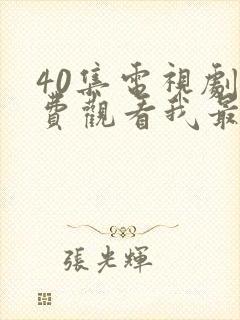 40集電視劇
費觀看我最
張光輝